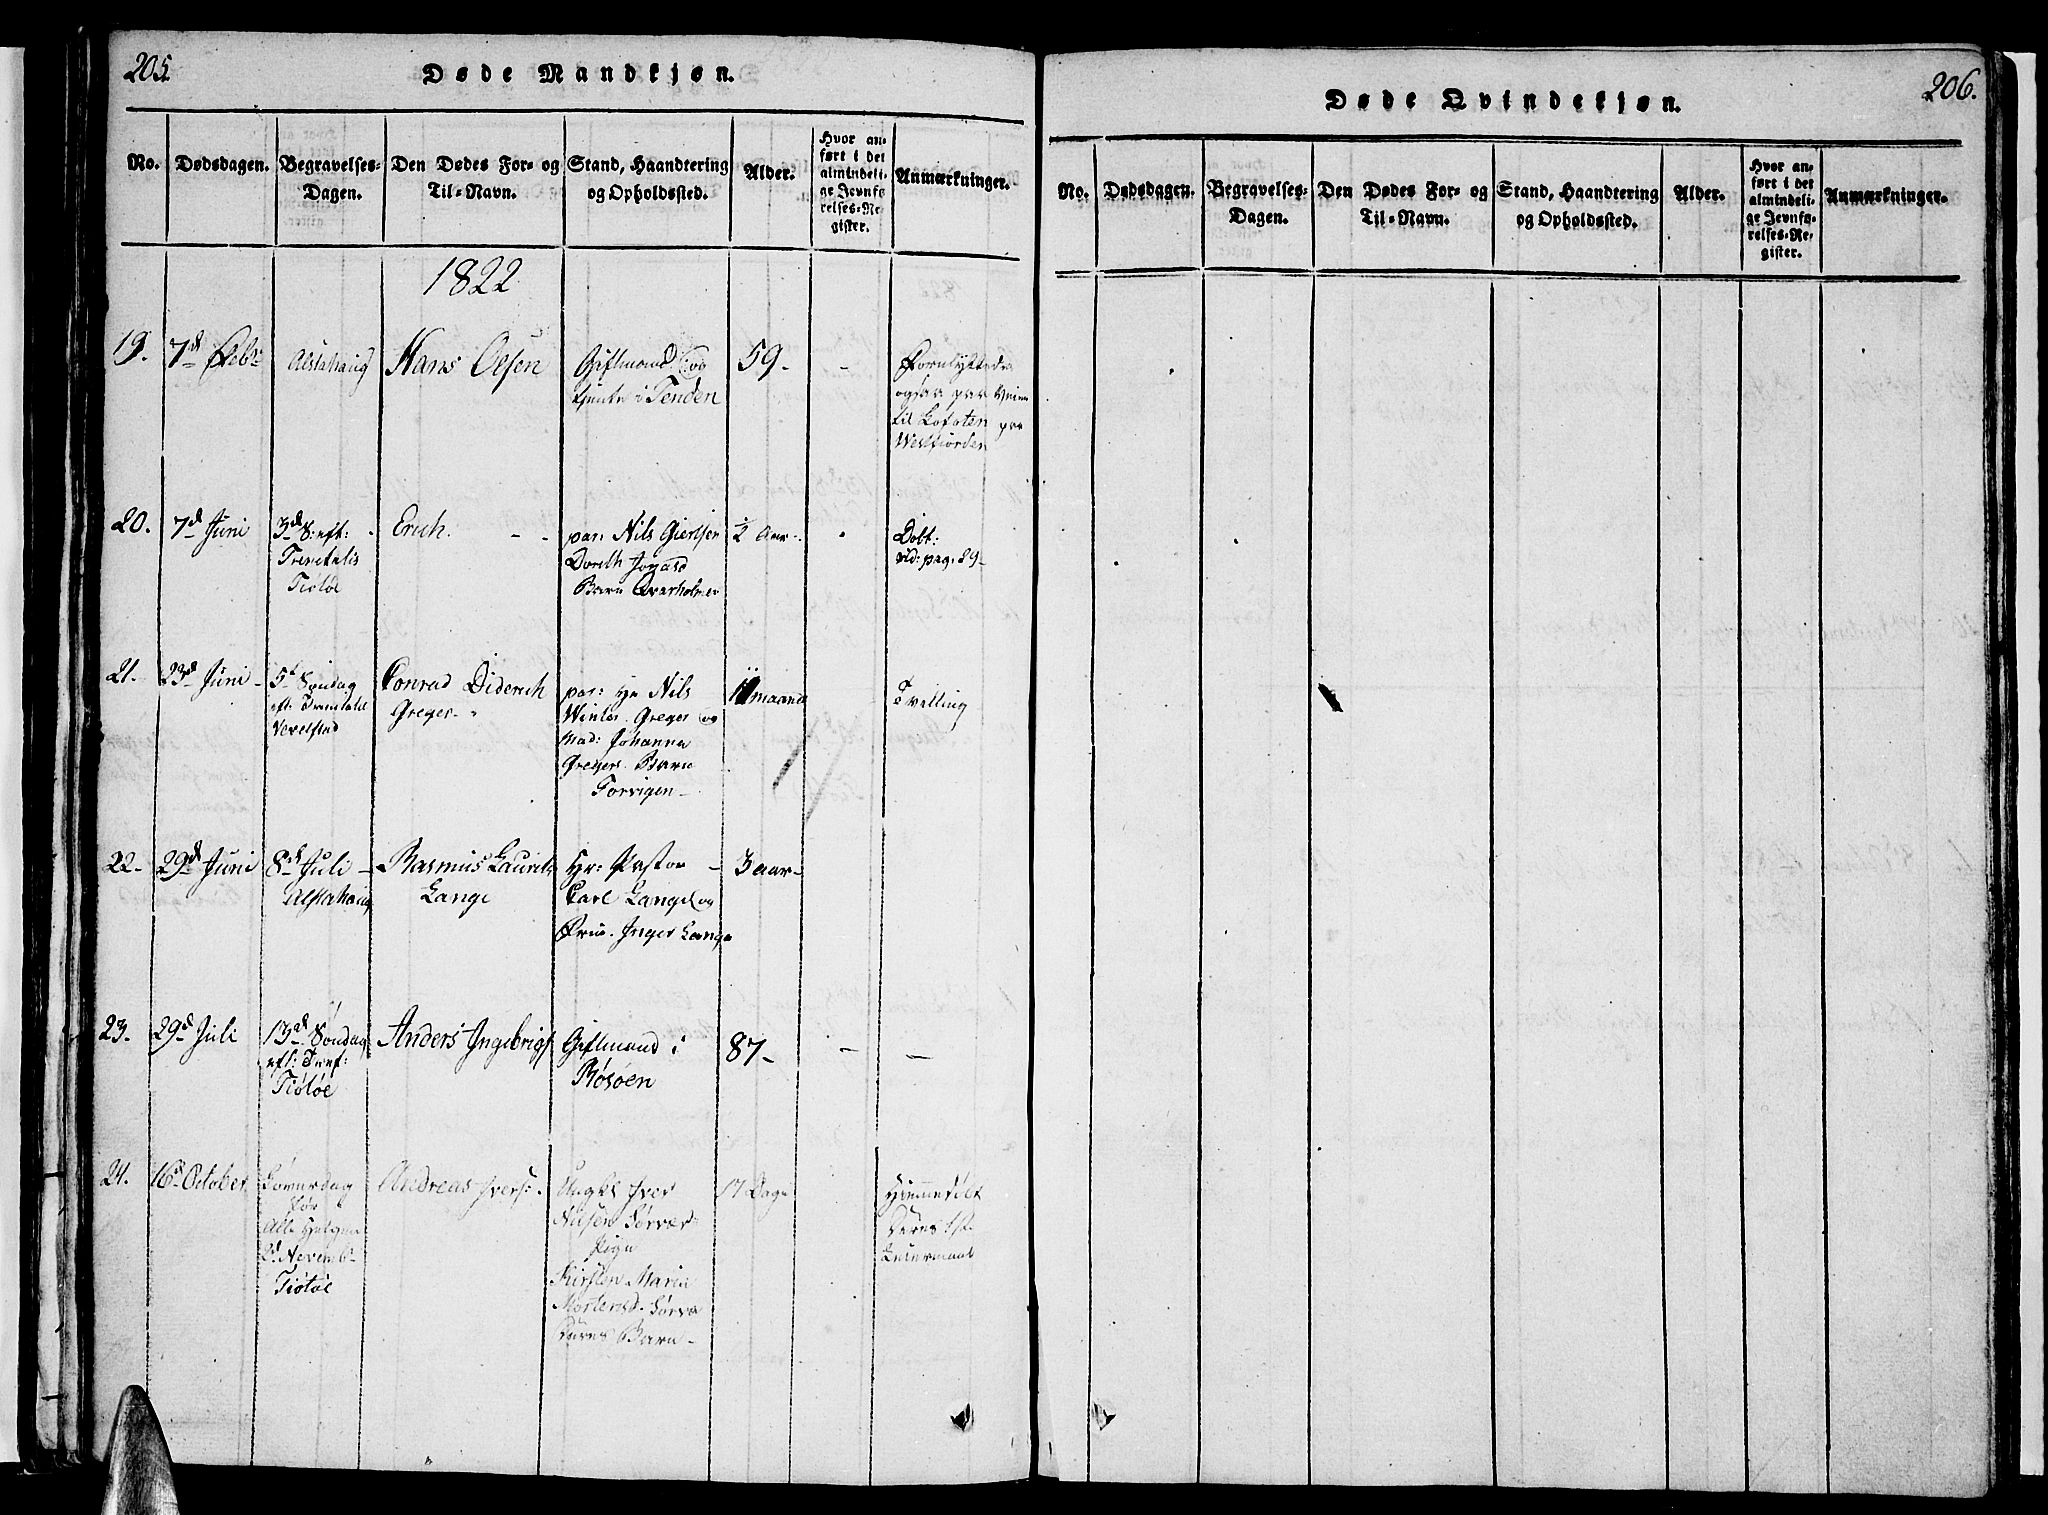 205.
Døde Mandkjøn.
No.
Dødsdagen.
Begravelses-
Dagen.
Den Dødes For- og
Til-Navn.
Stand, Haandtering
og Opholdssted.
Alder.
Hvor an-
ført i det
almindeli-
ge Jevnfø-
relses-Re-
gister.
Anmærkninger.
1822
19.
7d Febr
Alstahaug
Hans Olsen
Giftmand og
tjente i Tenden
59-
-
Forulykkede
ogsaa paa Veien
til Lofoten paa
Westfiorden
20.
7d Juni
3d S: eft:
Trinitatis
Tiøtøe
Erich.
par: Nils Giertsen
Doreth Jonasd
Barn Qvarholmen
½ Aar-
Døbt:
vid: pag: 89-
21.
23d Juni-
5t Søndag
eft: Trinitatis
Vevelstad
Conrad Diderich
Greger-
par: Hr Nils
Winter Greger og
Mad: Johanna
Gregers Barn
Forvigen-
11 maaned
Tvilling
22-
29d Juni
8d Juli-
Alstahaug
Rasmus Laurits
Lange
Hr: Pastor
Carl Lange og
Frue Inger Lange
3 aar-
23.
29d Juli
13d Søndag
eft: Tref:
Tiøtøe
Anders Ingebrigts
Giftmand i
Rosøen
87-
-
-
24.
16d October
Løverdag
før
Alle Helgen
2d Novemb-
Tiøtøe
Andreas Ivers:
Ungkl Iver
Nilsen Sørvær
Pige
Kirsten Maria
Mortensd. Sørvæ
Deres Barn-
17 Dage
Hiemmedøbt
Deres 1ste
Leiermaal
206.
Døde Qvindekjøn.
No.
Dødsdagen.
Begravelses-
Dagen.
Den Dødes For- og
Til-Navn.
Stand, Haandtering
og Opholdssted.
Alder.
Hvor an-
ført i det
almindeli-
ge Jevnfø-
relses-Re-
gister.
Anmærkninger.